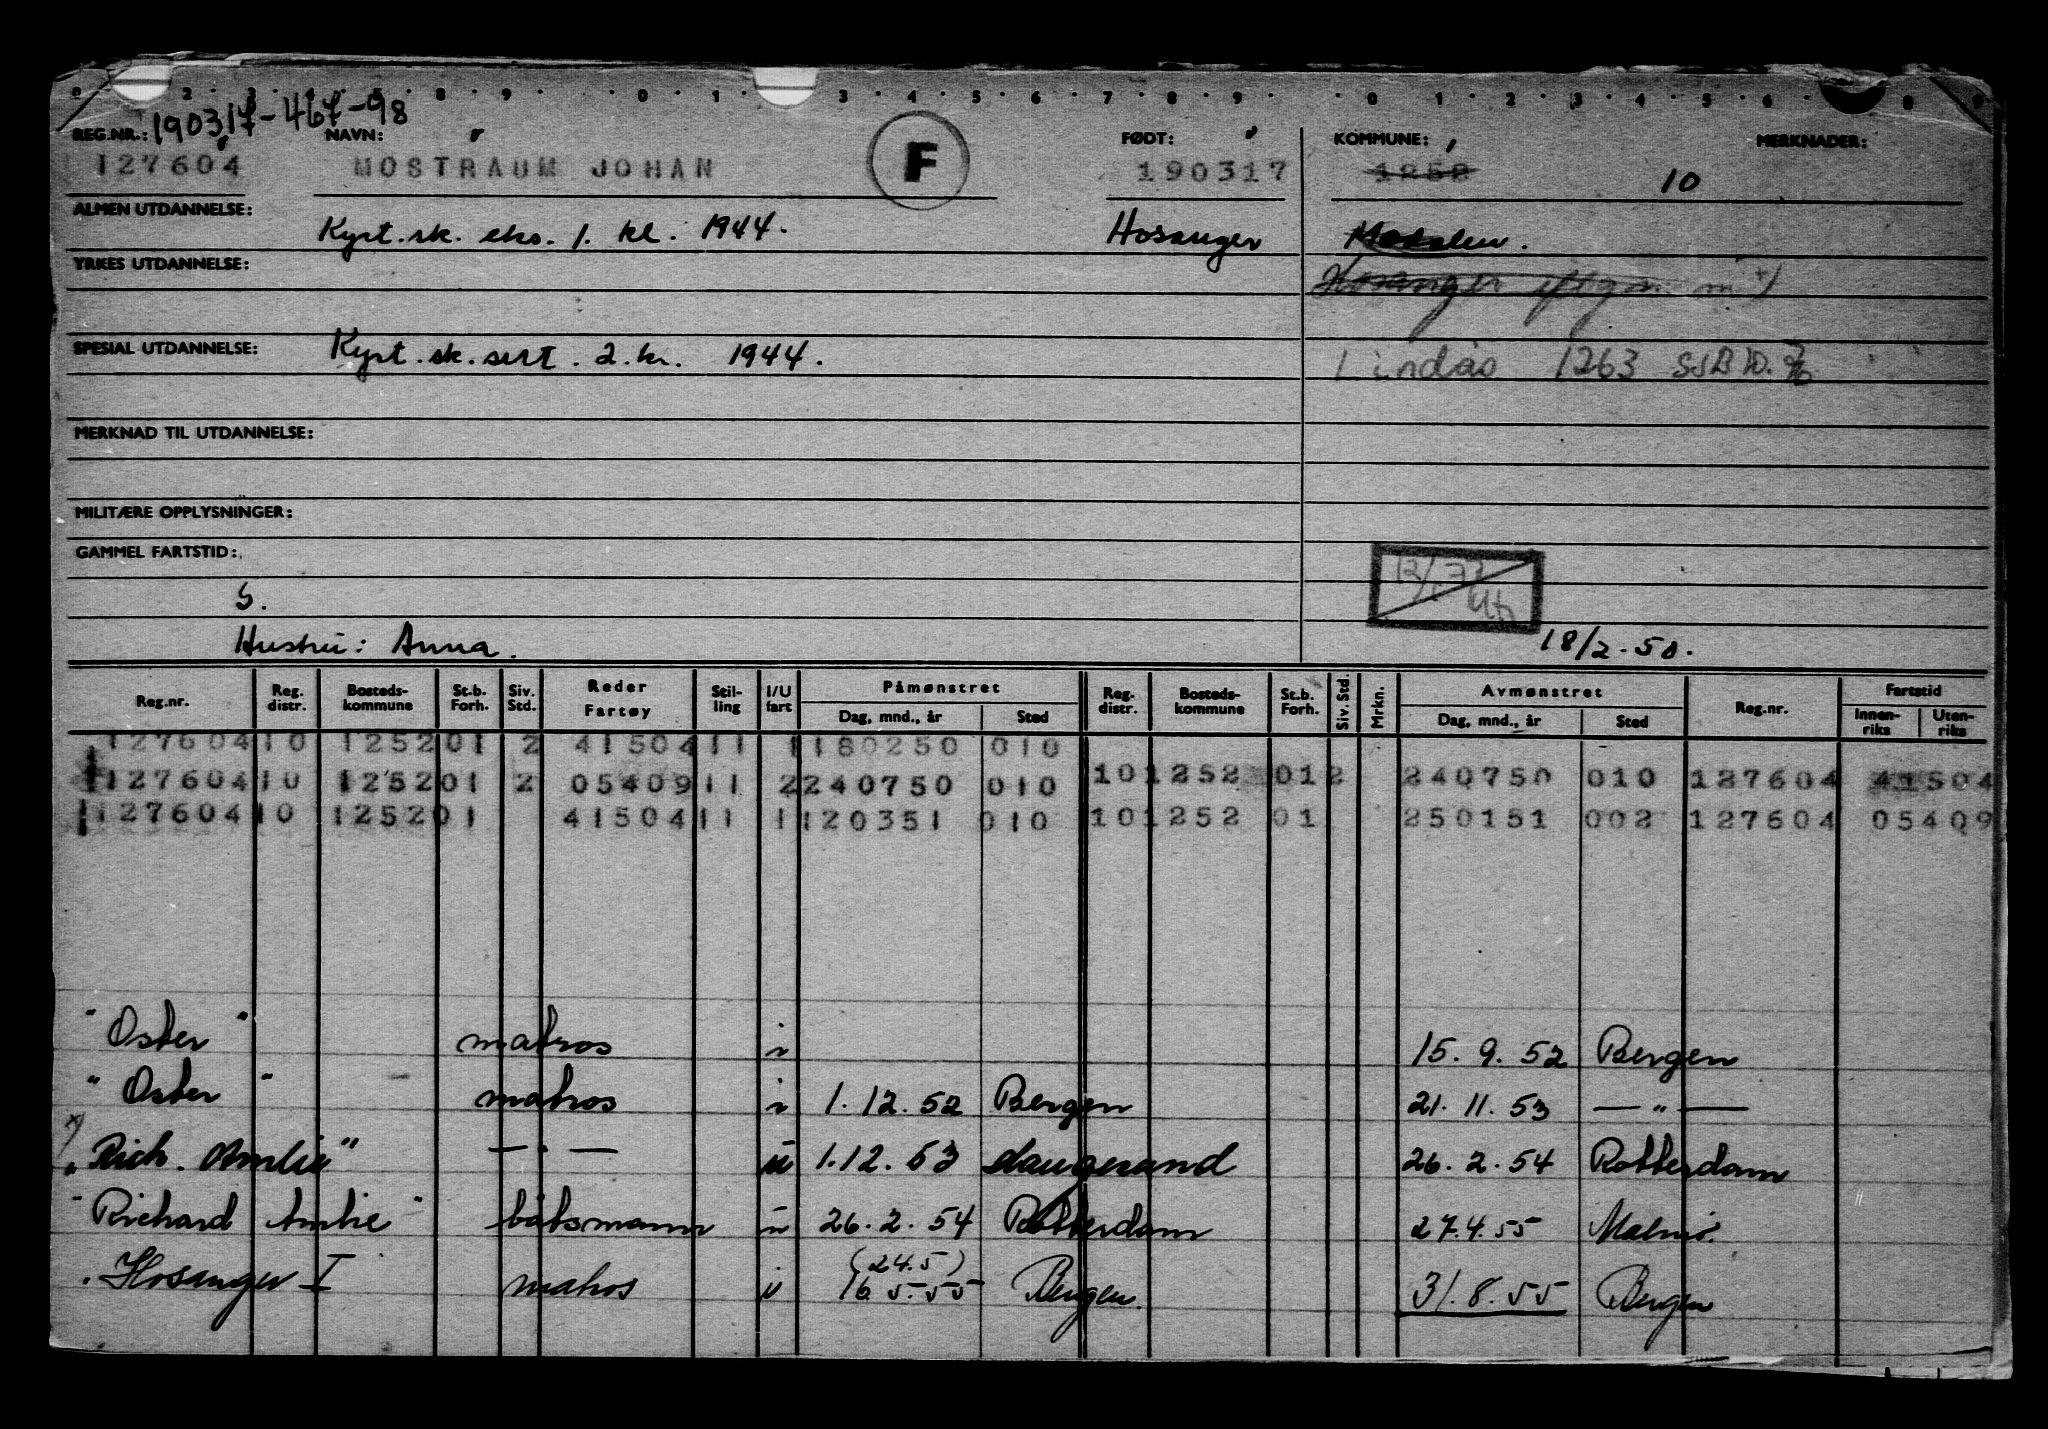 190317-467-98
REG.NR.: NAVN: FØDT: KOMMUNE: MERKNADER:
127604 MOSTRAUM JOHAN F 190317 1252 10
ALMEN UTDANNELSE: Kyst.sk. eks. 1. kl. 1944. Hosanger Modalen.
YRKES UTDANNELSE:
Hosanger
SPESIAL UTDANNELSE: Kyst.sk.sert. 2.kl. 1944. Lindås 1263
MERKNAD TIL UTDANNELSE:
MILITÆRE OPPLYSNINGER:
GAMMEL FARTSTID:
S.
Hustru: Anna. 18/2-50.
Reg.nr. Reg. distr. Bosteds-kommune St.b. Forh. Siv. Std. Reder Fartøy Stil-ling I/U fart Påmønstret Dag, mnd., år Sted Reg. distr. Bosteds-kommune St.b. Forh. Siv. Std. Mrkn. Avmønstret Dag, mnd., år Sted Reg.nr. Fartstid Innen-riks Uten-riks
127604 10 1252 01 2 41504 11 1 180250 010
127604 10 1252 01 2 05409 11 2 240750 010 10 1252 01 2 240750 010 127604 41504
127604 10 1252 01 41504 11 1 120351 010 10 1252 01 250151 002 127604 05409
"Oster" matros i 15.9.52 Bergen
"Oster" matros i 1.12.52 Bergen 21.11.53 — " —
x) "Rich. Amlie" — " — u 1.12.53 Haugesund 26.2.54 Rotterdam
"Richard Amlie" båtsmann u 26.2.54 Rotterdam 27.4.55 Malmø.
(24.5)
Hosanger I matros i 16.5.55 Bergen. 31.8.55 Bergen